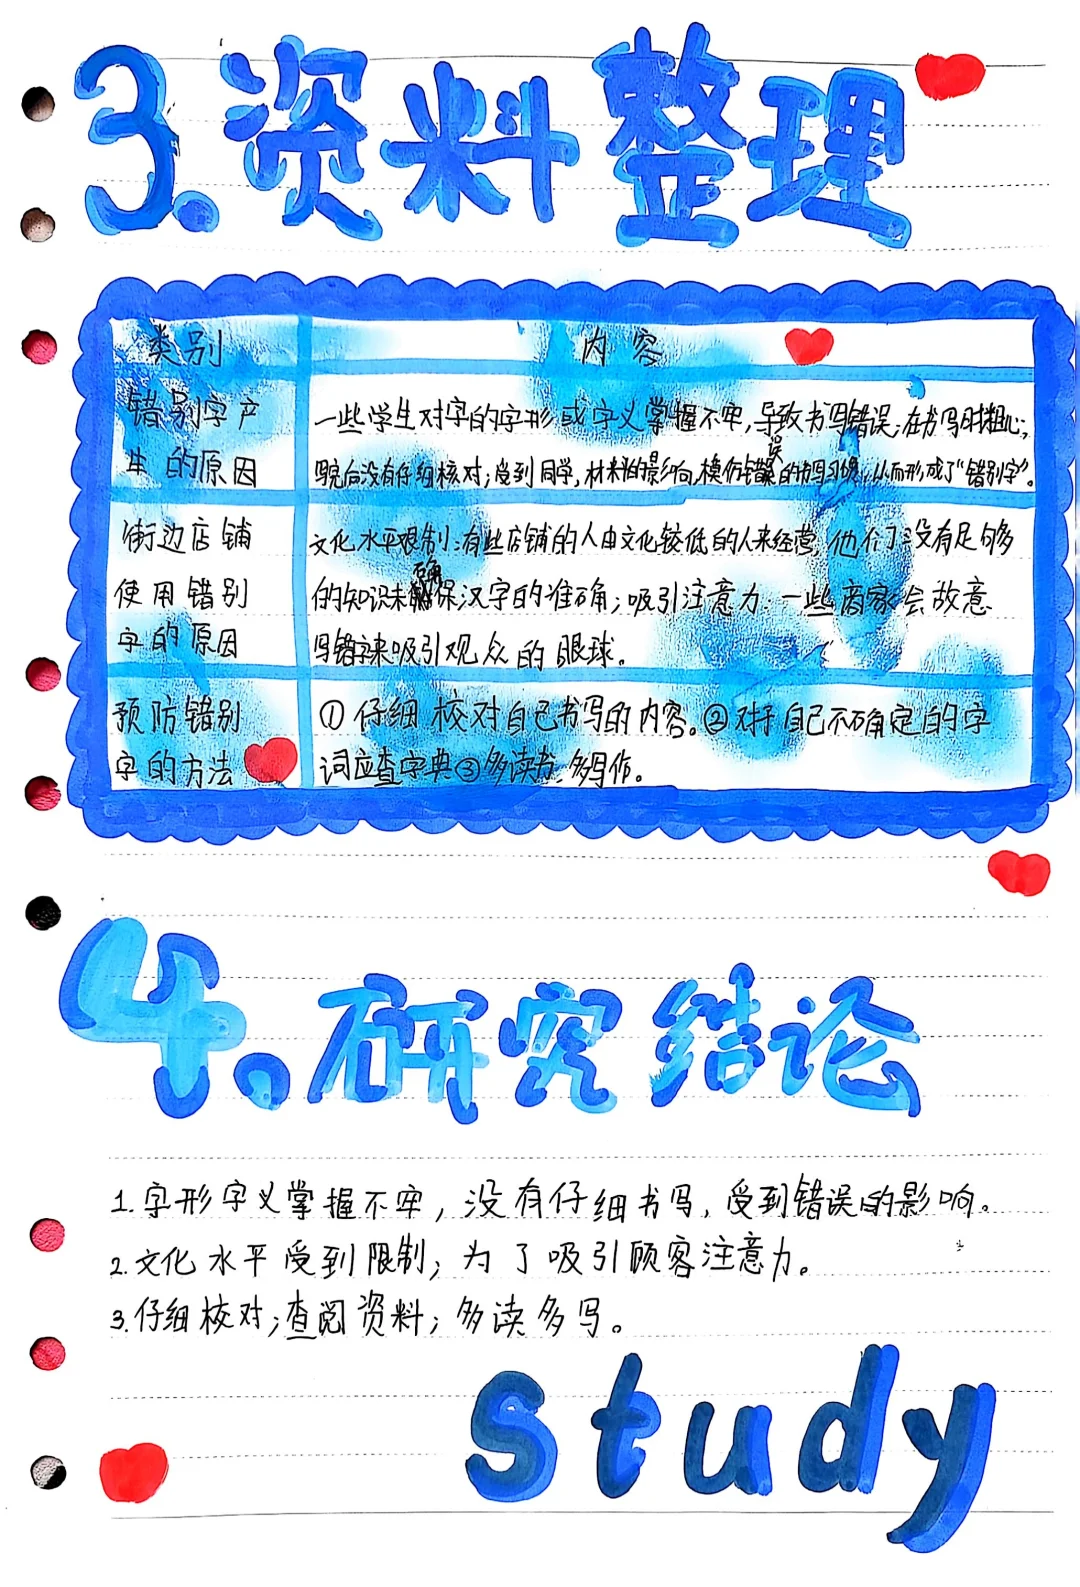 3.资料整理
类别 内容
错别字产
生的原因
一些学生对字的字形或字义掌握不牢,导致书写错误;在书写时粗心,
写完后没有仔细核对;受到同学,材料的影响,模仿错误的书写习惯,从而形成了“错别字”。
街边店铺
使用错别
字的原因
文化水平限制:有些店铺的人由文化较低的人来经营,他们没有足够
的知识未确保汉字的准确;吸引注意力:一些商家会故意
写错字来吸引观众的眼球。
预防错别
字的方法
①仔细校对自己书写的内容。②对于自己不确定的字
词应查字典③多读书,多写作。
4.研究结论
1.字形字义掌握不牢,没有仔细书写,受到错误的影响。
2.文化水平受到限制;为了吸引顾客注意力。
3.仔细校对;查阅资料;多读多写。
study